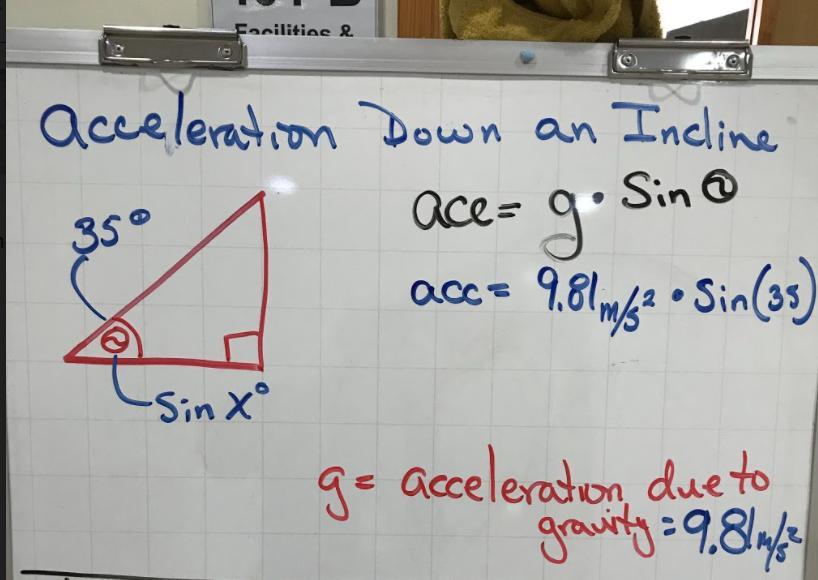 Facilities &
Acceleration Down an Incline
35°
acc= g • Sin Θ
acc= 9.81 m/s² • Sin(35)
Θ
Sin X°
g = acceleration due to
gravity = 9.81 m/s²